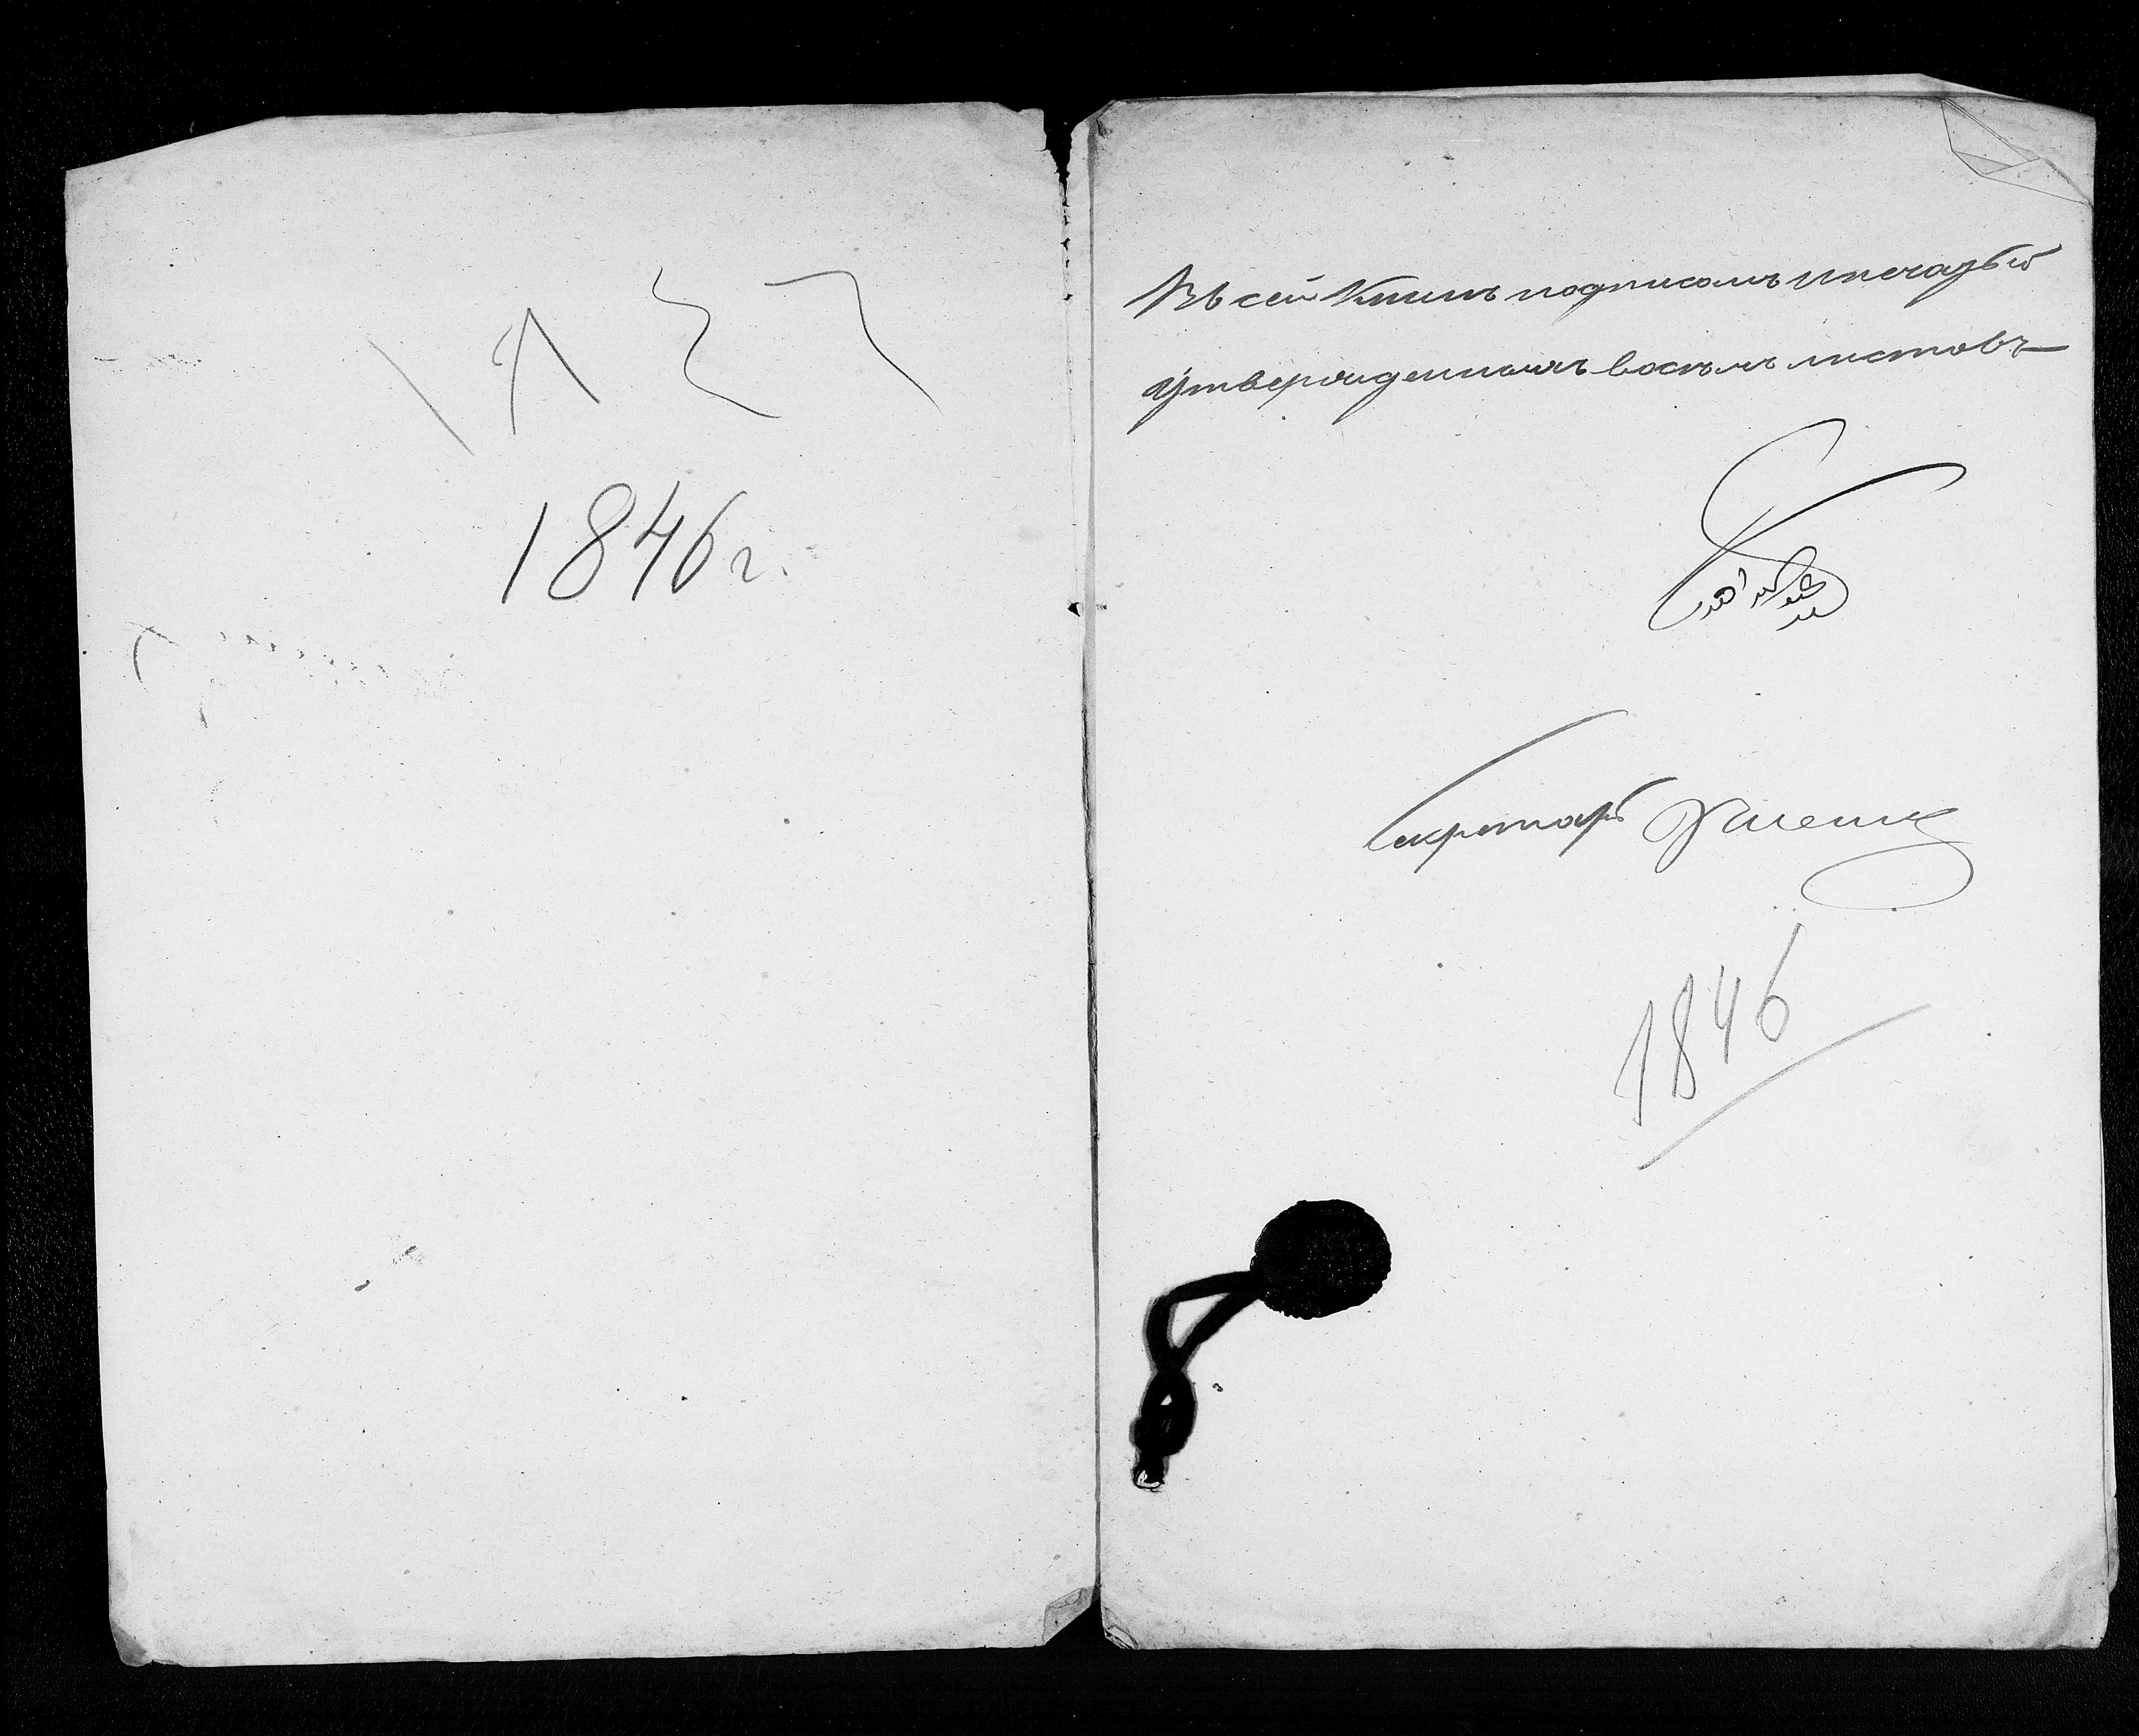 ١٨٤٦
1846 г.
Въ сей Книгѣ подписомъ и печатью
Утвержденномъ восемъ листовъ
Секретарь
1846